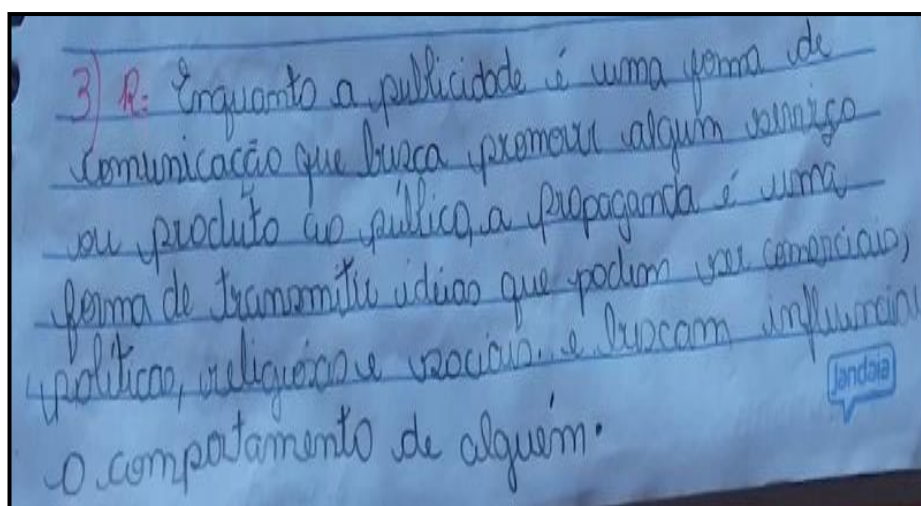 3) R: Enquanto a publicidade é uma forma de
comunicação que busca promover algum serviço
ou produto ao público, a propaganda é uma
forma de transmitir idéias que podem ser comerciais,
políticas, religiosas e sociais. e buscam influenciar
Jandaia
o comportamento de alguém.